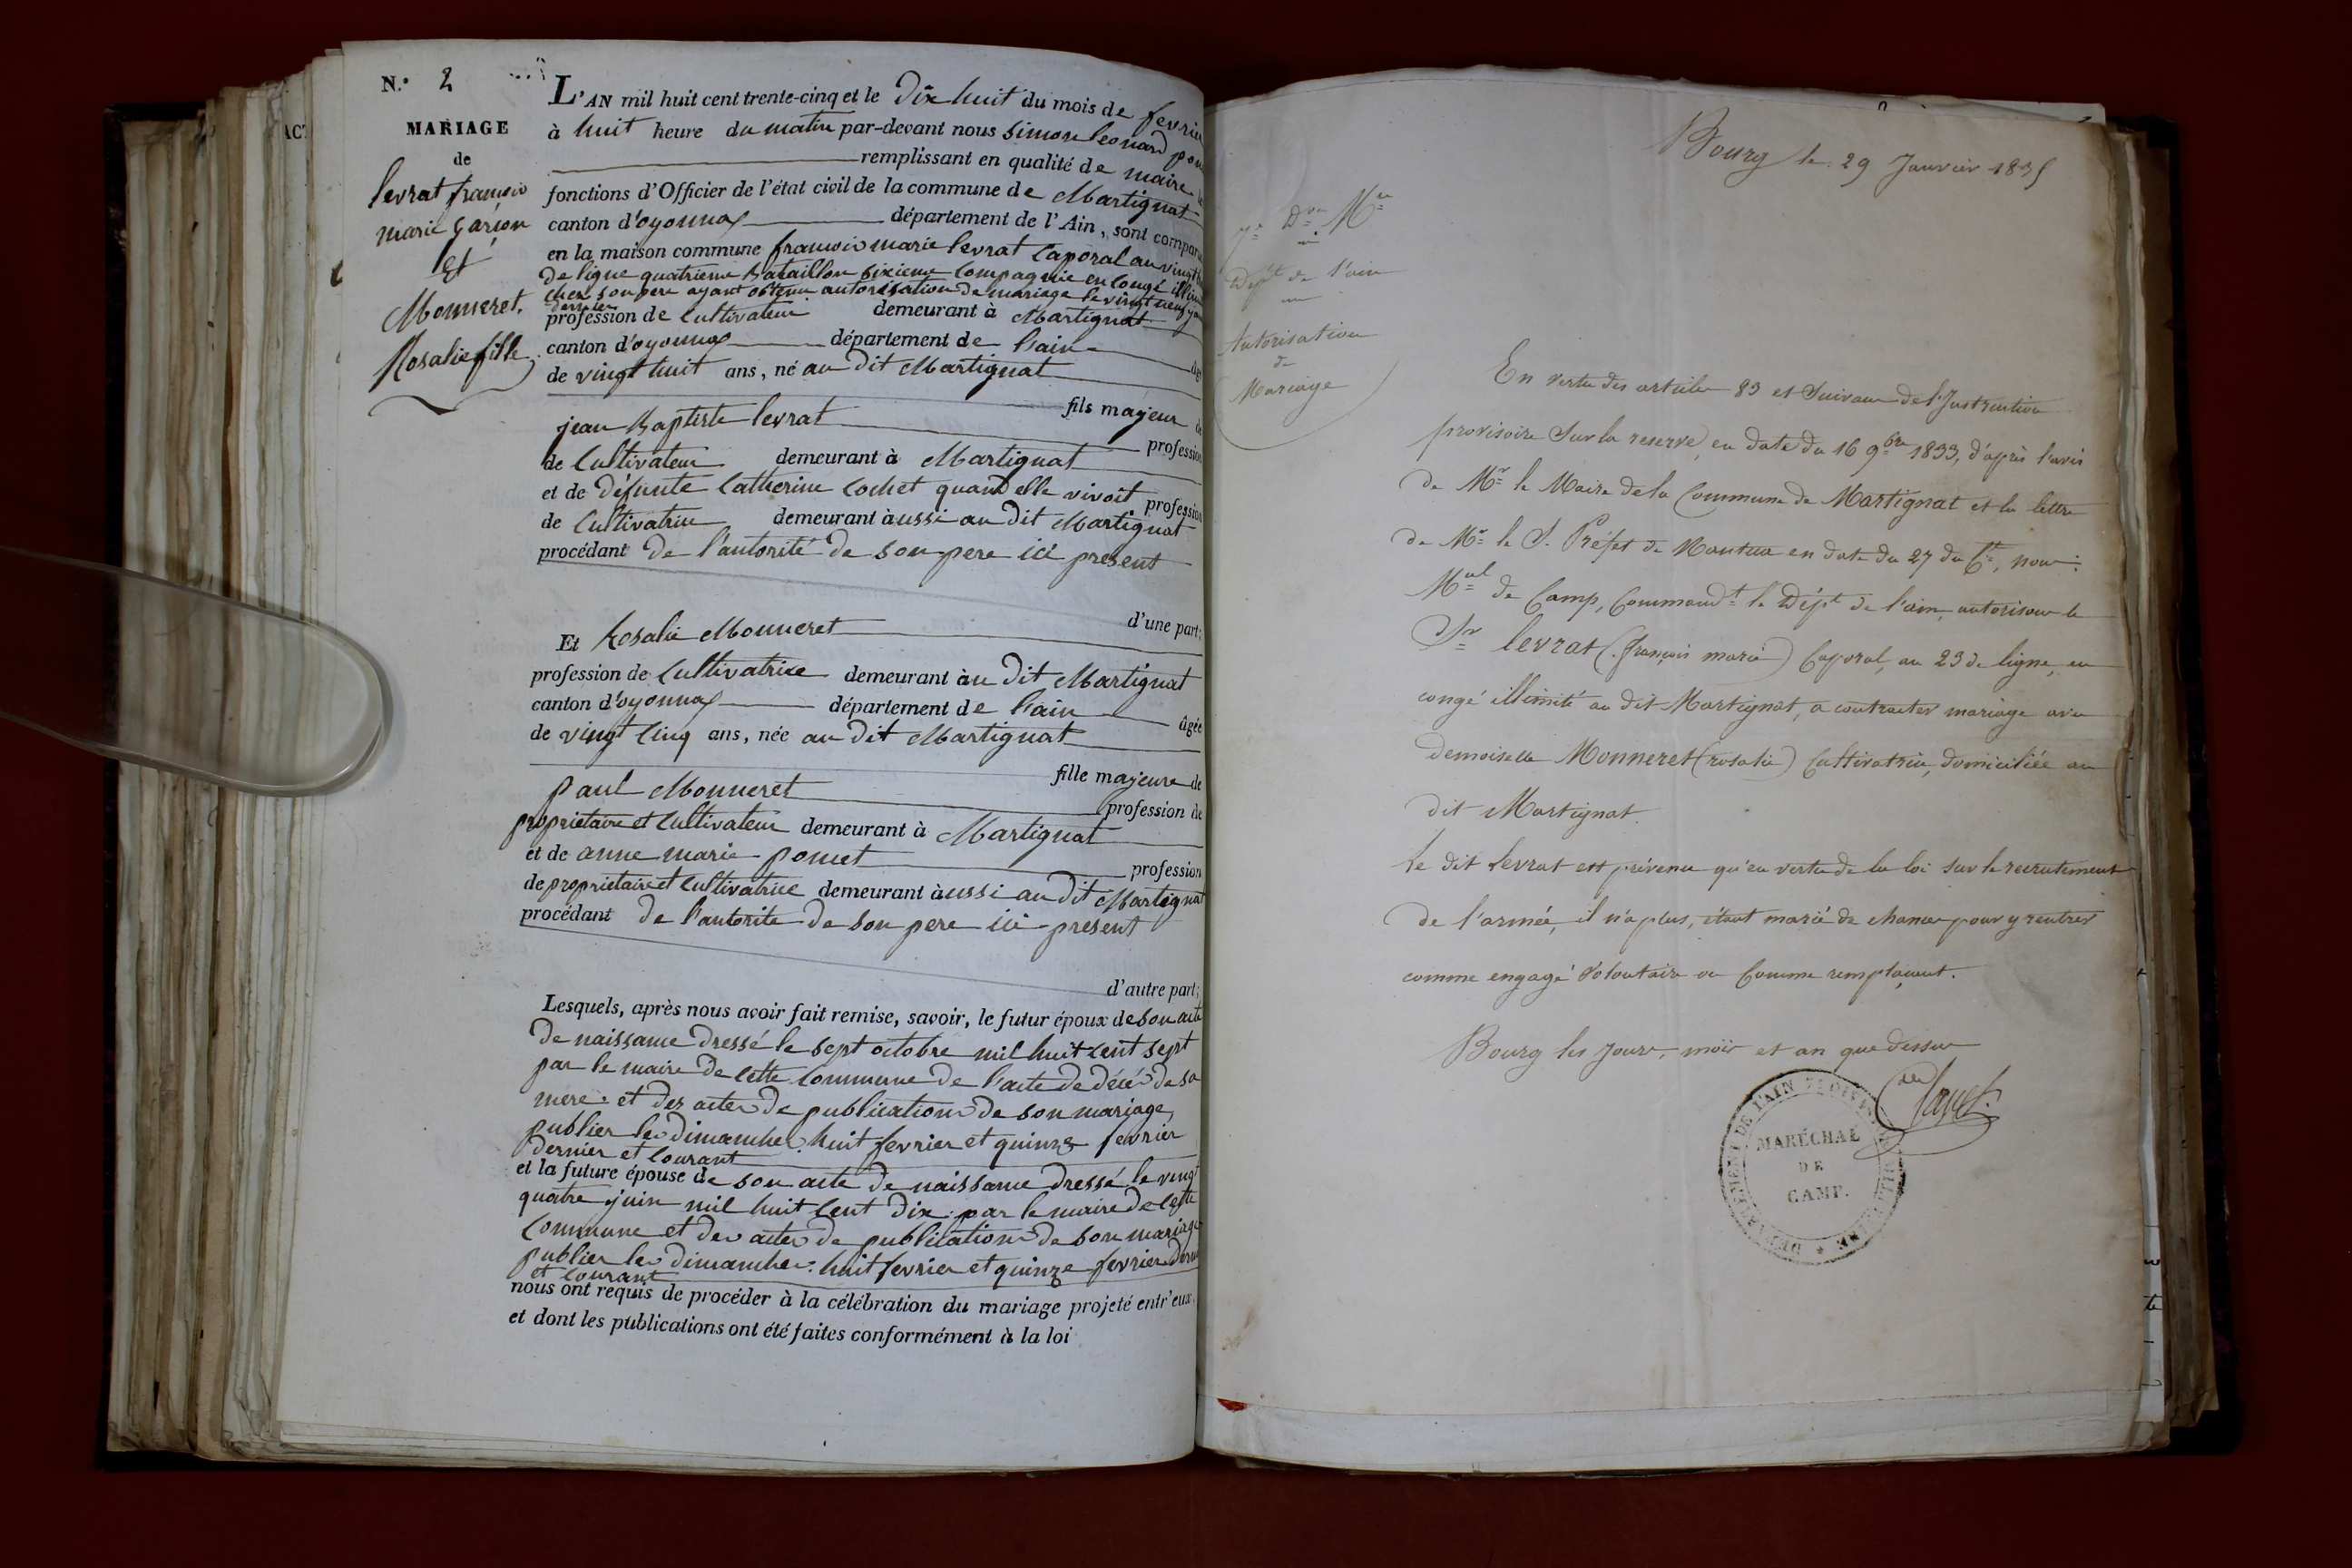 N.° 2
MARIAGE
de
levrat francois
marie garçon
Et
Monneret
Rosalie fille
L'AN mil huit cent trente-cinq et le dix huit du mois de fevrier
à huit heure du matin par-devant nous Simon leonard
remplissant en qualité de maire
fonctions d'Officier de l'état civil de la commune de Martignat
canton d'oyonnax département de l'Ain, sont compar
en la maison commune francois marie levrat Caporal au vingt
de ligne quatrieme Bataillon Sixieme Compagnie en Congé
chez son pere ayant obtenu autorisation de mariage le vingt neuf
dernier
profession de Cultivateur demeurant à Martignat
canton d'oyonnax département de l'ain
de vingt huit ans, né au dit Martignat
fils majeur
jean Baptiste levrat
profession
de Cultivateur demeurant à Martignat
et de défunte Catherine Cochet quand elle vivoit profession
de Cultivatrice demeurant aussi au dit Martignat
procédant de l'autorité de son pere ici present
d'une part;
Et Rosalie Monneret
profession de Cultivatrice demeurant au dit Martignat
canton d'oyonnax département de l'ain âgée
de vingt Cinq ans, née au dit Martignat
fille majeure de
paul Monneret profession de
proprietaire et Cultivateur demeurant à Martignat
et de anne marie pomet profession
de proprietaire et Cultivatrice demeurant aussi au dit Martignat
procédant de l'autorite de son pere ici present
d'autre part;
Lesquels, après nous avoir fait remise, savoir, le futur époux de son acte
de naissance dressé le sept octobre mil huit Cent sept
par le maire de Cette Commune de l'acte de décés de sa
mere. et des actes de publications de son mariage
publier les dimanches huit fevrier et quinze fevrier
dernier et Courant
et la future épouse de son acte de naissance dressé le vingt
quatre juin mil huit Cent dix par le maire de Cette
Commune et des actes de publications de son mariage
publier les dimanches huit fevrier et quinze fevrier
et Courant
nous ont requis de procéder à la célébration du mariage projeté entr'eux,
et dont les publications ont été faites conformément à la loi
Bourg le 29 Janvier 1835
7e Don Mre
Dépt de l'ain
Autorisation
de
Mariage
En vertu des articles 83 et Suivans de l'Instruction
provisoire Sur la reserve, en date du 16 9bre 1833, d'après l'avis
de Mr le Maire de la Commune de Martignat et la lettre
de Mr le S. Préfet de Nantua en date du 27 du Ct, nous
Mal de Camp, Commandt le Dépt de l'ain, autorisons le
Sr levrat (françois marie) Caporal, au 23 de ligne, en
congé illimité au dit Martignat, a contracter mariage avec
demoiselle Monneret (rosalie) Cultivatrice, domiciliée au
dit Martignat.
Le dit Levrat est prévenu qu'en vertu de la loi sur le recrutement
de l'armée, il n'a plus, étant marié de chance pour y rentrer
comme engagé Volontaire ou Comme remplaçant.
Bourg les Jour, mois et an que dessus
DÉPARTEMENT DE L'AIN
MARÉCHAL
DE
CAMP.